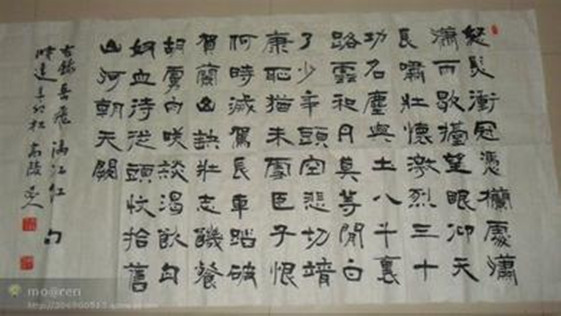 怒髮衝冠憑欄處瀟
瀟雨歇擡望眼仰天
長嘯壯懷激烈三十
功名塵與土八千裏
路雲和月莫等閒白
了少年頭空悲切靖
康恥猶未雪臣子恨
何時滅駕長車踏破
賀蘭山缺壯志饑餐
胡虜肉咲談渴飲匈
奴血待從頭收拾舊
山河朝天闕
右錄岳飛滿江紅句
時逢辛卯秋高陵
mo@ren